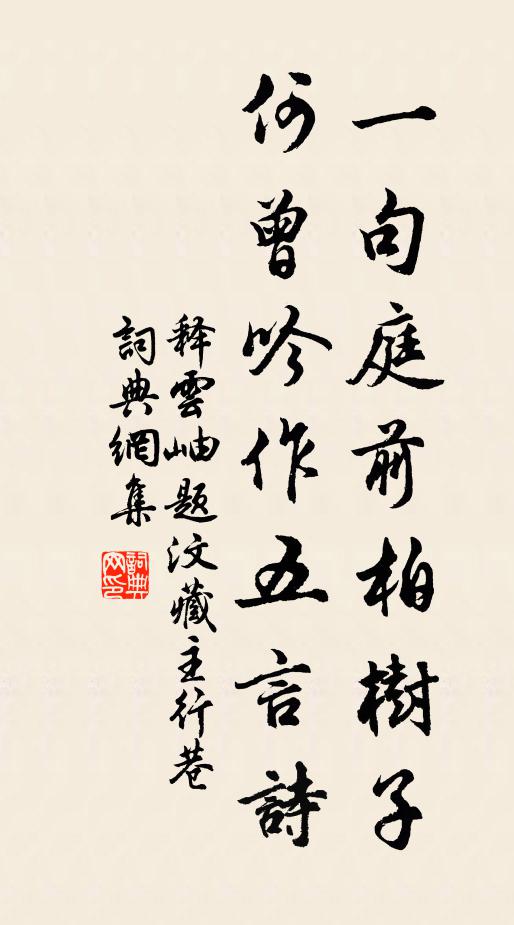 一句庭前柏樹子
何曾吟作五言詩
释雲岫题汶藏主行巷
詞典網集
詞典網印